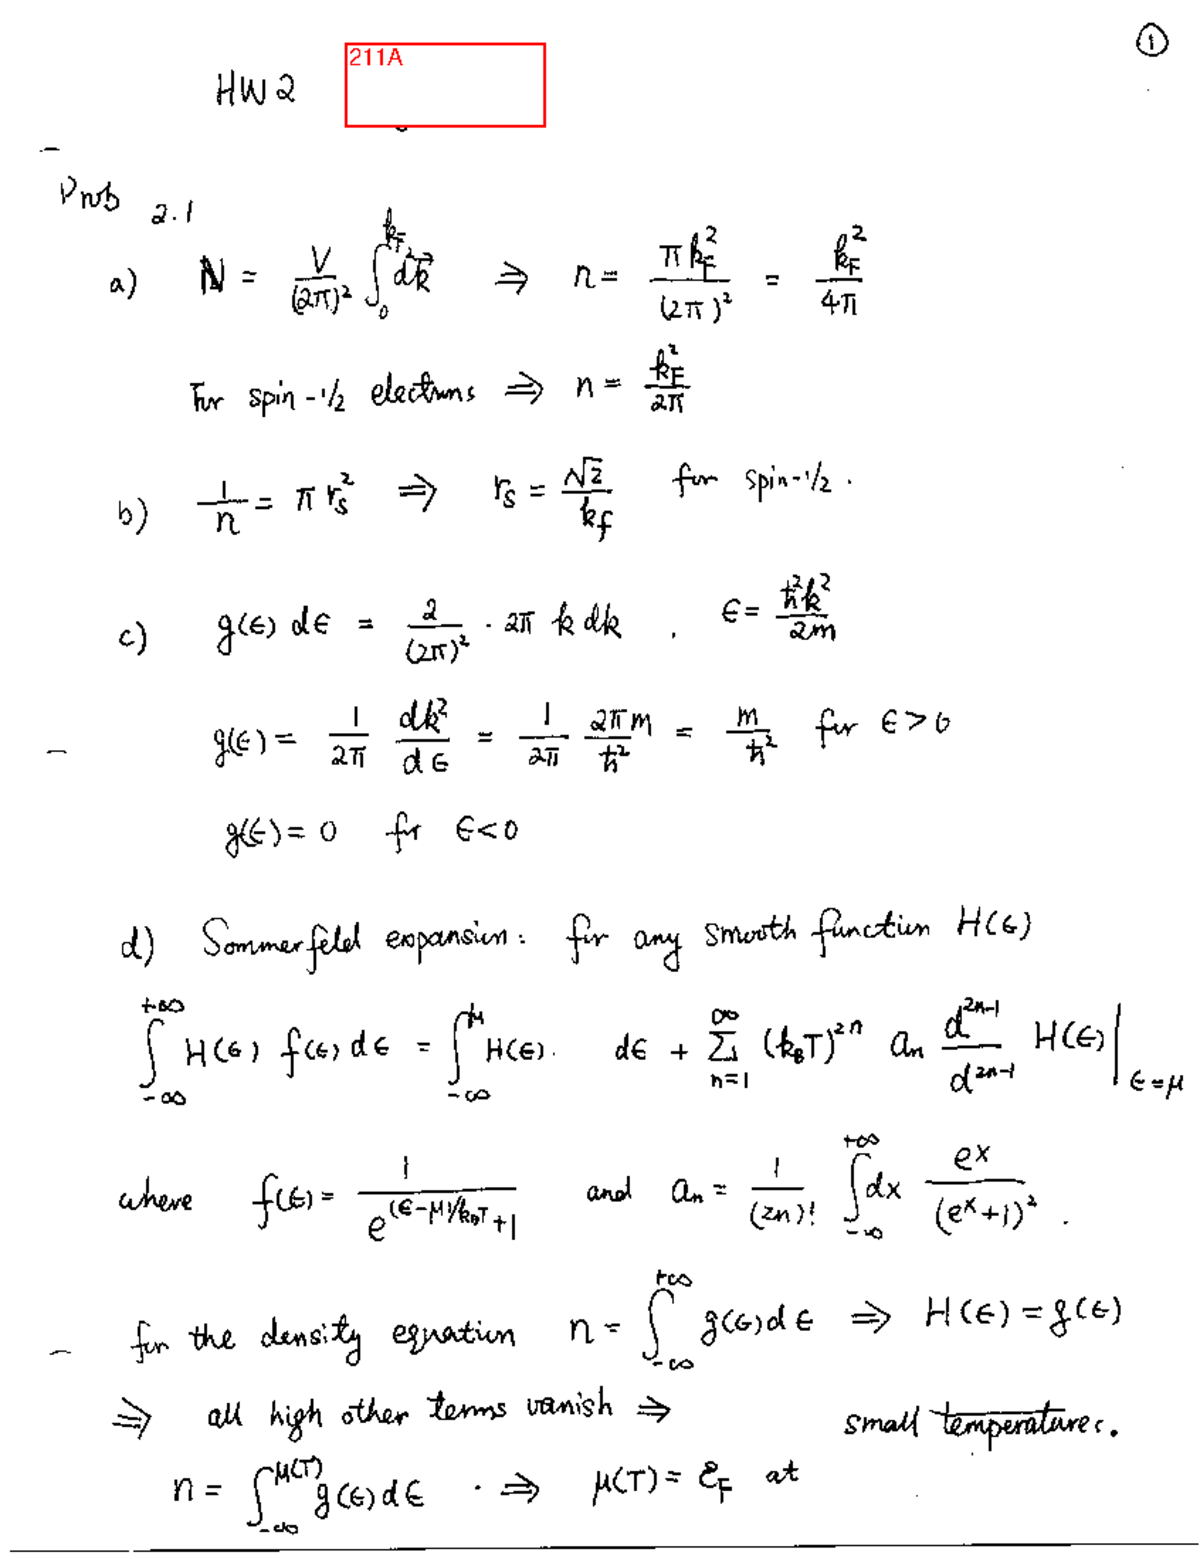 ①
211A
HW2
Prob 2.1
a) N = V/(2π)² ∫₀^{k_F} d²k⃗ ⇒ n = πk_F²/(2π)² = k_F²/4π
For spin-1/2 electrons ⇒ n = k_F²/2π
b) 1/n = π r_s² ⇒ r_s = √2/k_f for spin-1/2.
c) g(ϵ) dϵ = 2/(2π)² · 2π k dk , ϵ = ħ²k²/2m
g(ϵ) = 1/2π dk²/dϵ = 1/2π 2πm/ħ² = m/ħ² for ϵ>0
g(ϵ) = 0 for ϵ<0
d) Sommerfeld expansion: for any smooth function H(ϵ)
∫_{-∞}^{+∞} H(ϵ) f(ϵ) dϵ = ∫_{-∞}^{μ} H(ϵ). dϵ + Σ_{n=1}^{∞} (k_BT)^{2n} a_n d^{2n-1}/d^{2n-1} H(ϵ)|_{ϵ=μ}
where f(ϵ) = 1/(e^{(ϵ-μ)/k_BT}+1) and a_n = 1/(2n)! ∫_{-∞}^{+∞} dx e^x/(e^x+1)² .
for the density equation n = ∫_{-∞}^{+∞} g(ϵ)dϵ ⇒ H(ϵ) = g(ϵ)
⇒ all high other terms vanish ⇒ small temperatures.
n = ∫_{-∞}^{μ(T)} g(ϵ)dϵ . ⇒ μ(T) = ε_F at